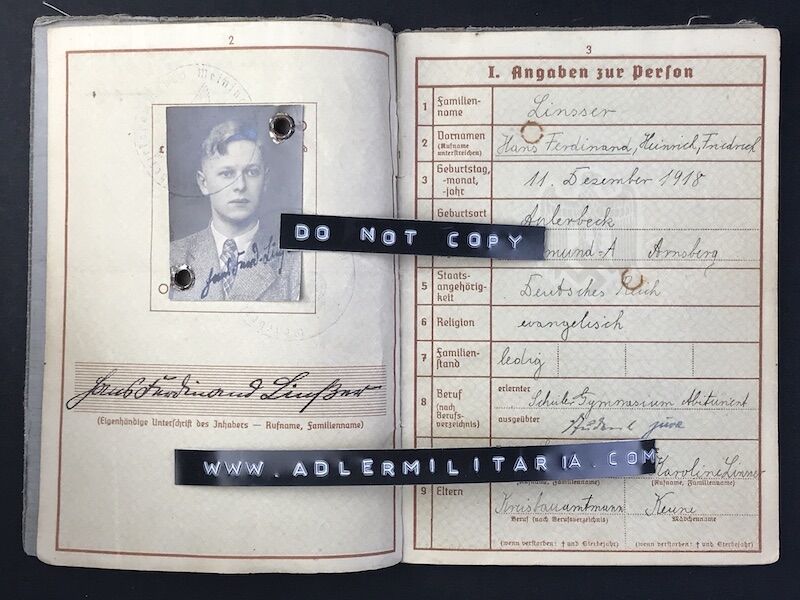 2
Hans Ferdinand Linßer
(Eigenhändige Unterschrift des Inhabers — Rufname, Familienname)
DO NOT COPY
WWW.ADLERMILITARIA.COM
3
I. Angaben zur Person
1 Familien-
name
Linsser
2 Vornamen
(Rufname
unterstreichen)
Hans Ferdinand, Heinrich, Friedrich
3 Geburtstag,
-monat,
-jahr
11. Dezember 1918
Geburtsort
Aplerbeck
mund-A Arnsberg
5 Staats-
angehörig-
keit
Deutsches Reich
6 Religion
evangelisch
7 Familien-
stand
ledig
8 Beruf
(nach
Berufs-
verzeichnis)
erlernter
Schuler Gymnasium Abiturient
ausgeübter
jura
Karoline
(Rufname, Familienname) (Rufname, Familienname)
9 Eltern
Kreisbauamtmann Keune
Beruf (nach Berufsverzeichnis) Mädchenname
(wenn verstorben: † und Sterbejahr) (wenn verstorben: † und Sterbejahr)